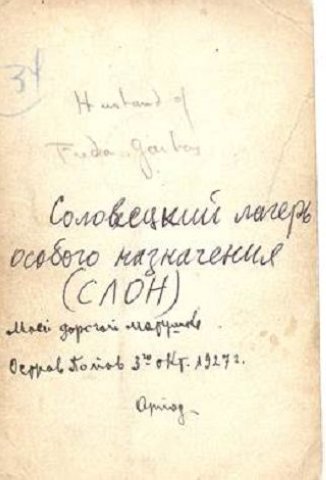 34
Husband of
Freda Garbas
Соловецкий лагерь
особого назначения
(СЛОН)
Моей дорогой мамушке.
Остров Попов 3го окт. 1927 г.